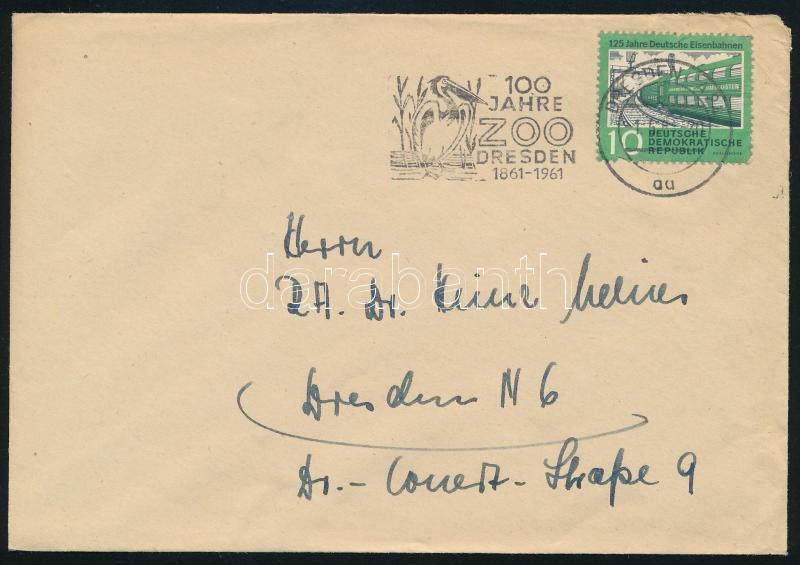 100
JAHRE
ZOO
DRESDEN
1861-1961
125 Jahre Deutsche Eisenbahnen
DRESDEN
10 DEUTSCHE
DEMOKRATISCHE
REPUBLIK
au
darabanth.com
Herrn
RA. Dr. Heinz
Dresden N 6
Dr.- Conert-Straße 9